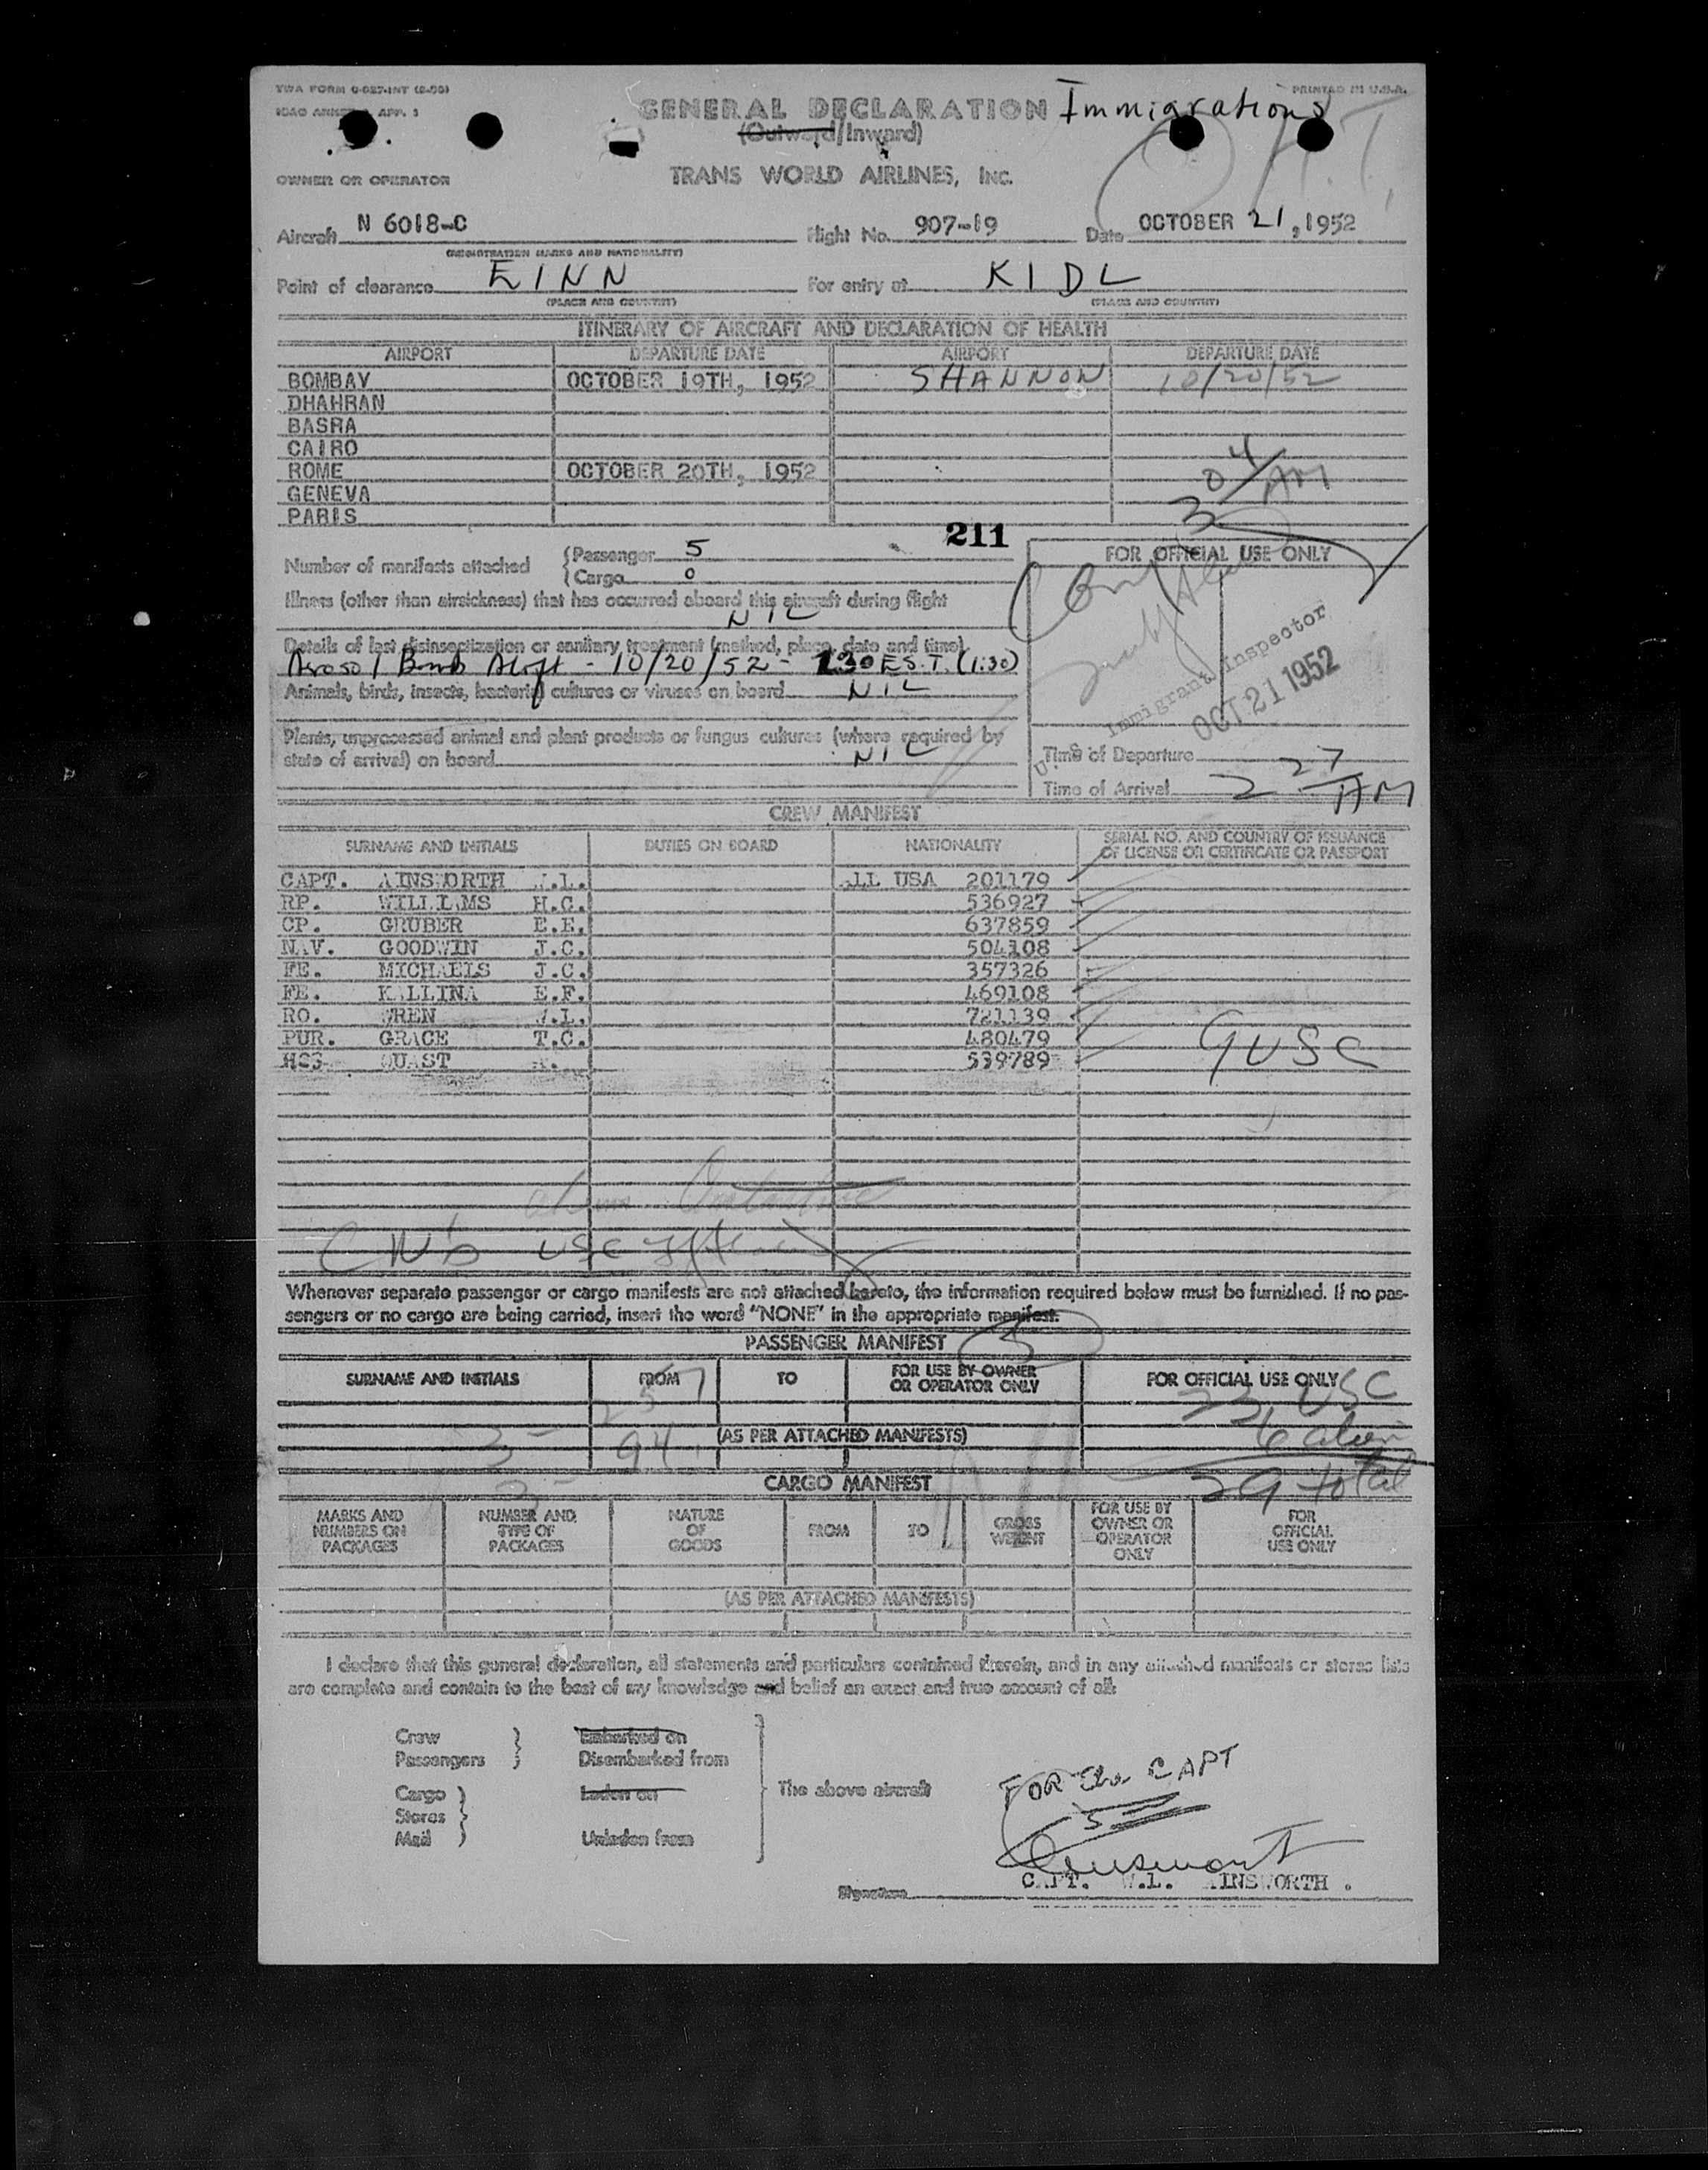 TWA FORM 0-027-INT
PRINTED IN U.S.A.
GENERAL DECLARATION Immigrations
(Outward/Inward)
TRANS WORLD AIRLINES, INC.
OWNER OR OPERATOR
Aircraft N 6018-C Flight No. 907-19 Date OCTOBER 21, 1952
(REGISTRATION MARKS AND NATIONALITY)
Point of clearance EINN For entry at KIDL
(PLACE AND COUNTRY) (PLACE AND COUNTRY)
ITINERARY OF AIRCRAFT AND DECLARATION OF HEALTH
AIRPORT DEPARTURE DATE AIRPORT DEPARTURE DATE
BOMBAY OCTOBER 19TH, 1952 SHANNON 10/20/52
DHAHRAN
BASRA
CAIRO
ROME OCTOBER 20TH, 1952
GENEVA
PARIS
3 04 AM
211
Number of manifests attached {Passenger 5
{Cargo 0
FOR OFFICIAL USE ONLY
Illness (other than airsickness) that has occurred aboard this aircraft during flight
NIL
Details of last disinsectization or sanitary treatment (method, place, date and time)
Arosol Bomb Aloft - 10/20/52 - 130 E.S.T. (1:30)
Animals, birds, insects, bacterial cultures or viruses on board NIL
Immigrant Inspector
OCT 21 1952
Plants, unprocessed animal and plant products or fungus cultures (where required by
state of arrival) on board NIL
Time of Departure
Time of Arrival 2 27 AM
CREW MANIFEST
SURNAME AND INITIALS DUTIES ON BOARD NATIONALITY SERIAL NO. AND COUNTRY OF ISSUANCE
OF LICENSE OR CERTIFICATE OR PASSPORT
CAPT. AINSWORTH W.L. ALL USA 201179
RP. WILLIAMS H.C. 536927
CP. GRUBER E.E. 637859
NAV. GOODWIN J.C. 504108
FE. MICHAELS J.C. 357326
FE. KALLINA E.F. 469108
RO. WREN W.L. 721139
PUR. GRACE T.C. 480479
HSS QUAST 539789
9 USC
Whenever separate passenger or cargo manifests are not attached hereto, the information required below must be furnished. If no pas-
sengers or no cargo are being carried, insert the word "NONE" in the appropriate manifest.
PASSENGER MANIFEST
SURNAME AND INITIALS FROM TO FOR USE BY OWNER
OR OPERATOR ONLY FOR OFFICIAL USE ONLY
23 USC
(AS PER ATTACHED MANIFESTS)
6 alien
29 total
CARGO MANIFEST
MARKS AND
NUMBERS ON
PACKAGES NUMBER AND
TYPE OF
PACKAGES NATURE
OF
GOODS FROM TO GROSS
WEIGHT FOR USE BY
OWNER OR
OPERATOR
ONLY FOR
OFFICIAL
USE ONLY
(AS PER ATTACHED MANIFESTS)
I declare that this general declaration, all statements and particulars contained therein, and in any attached manifests or stores lists
are complete and contain to the best of my knowledge and belief an exact and true account of all:
Crew } Embarked on
Passengers } Disembarked from
Cargo } Laden on The above aircraft
Stores }
Mail } Unladen from
FOR the CAPT
Signature CAPT. W.L. AINSWORTH.